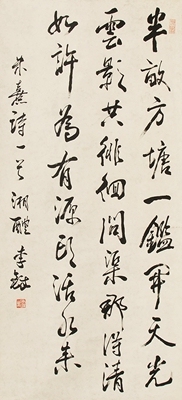 半畝方塘一鑑開天光
雲影共徘徊問渠那得清
如許為有源頭活水来
朱熹詩一首 湘醴 李鐸